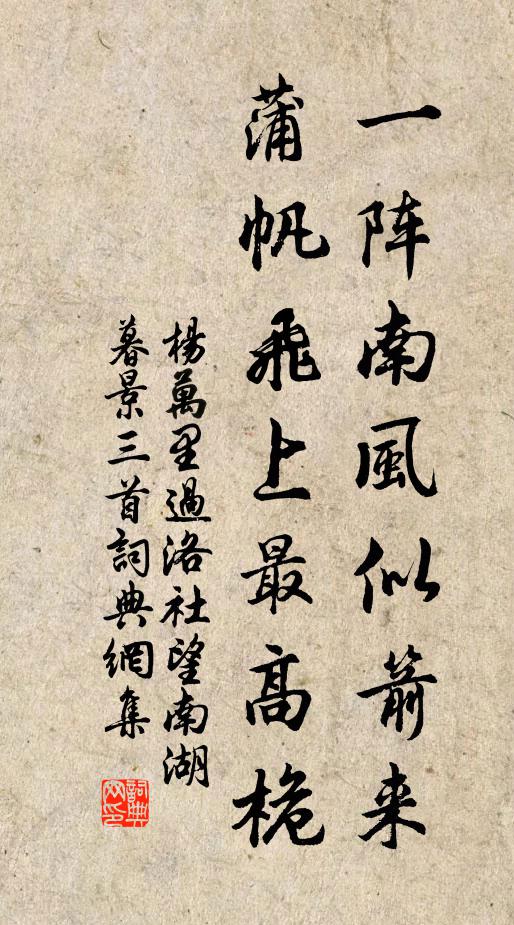 一阵南風似箭来
蒲帆飛上最高桅
楊萬里過洛社望南湖
暮景三首詞典網集
詞典
网印